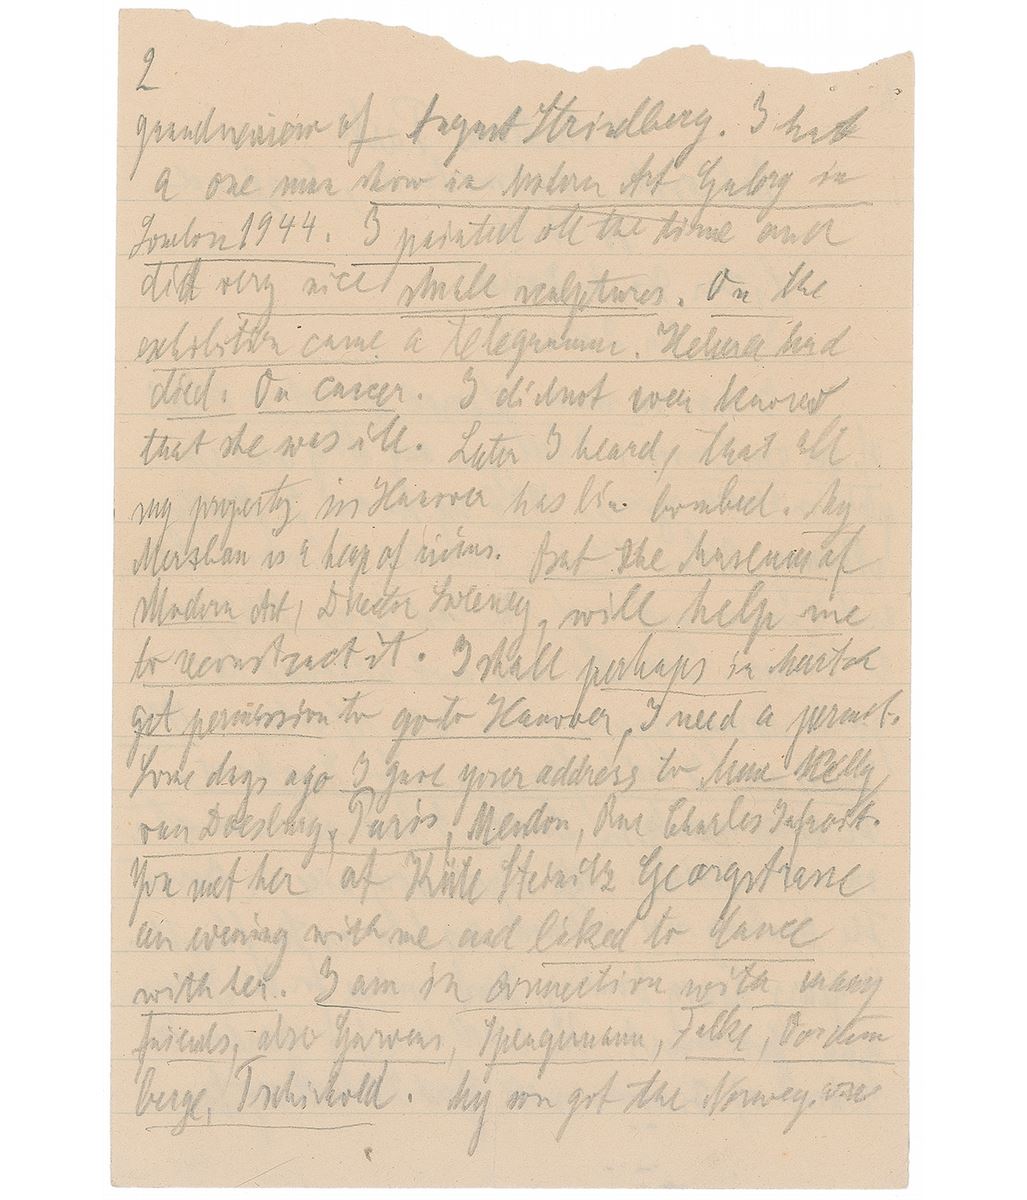 2
of August Strindberg. I had
a one man show in Modern Art Galery in
London 1944. I painted all the time and
did very nice small sculptures. On the
exhibition came a telegramm. Helma had
died. On cancer. I did not even knowed
that she was ill. Later I heard, that all
my property in Hanover has bin bombed. My
Merzbau is a heap of ruins. But the Museum of
Modern Art, Director Sweeney, will help me
to reconstruct it. I shall perhaps in March
get permission to go to Hanover, I need a permit.
Some days ago I gave your address to Nelly
van Doesburg, Paris, Meudon, Rue Charles Infroit.
You met her at Käte Steinitz Georgstrasse
an evening with me and liked to dance
with her. I am in connection with many
friends, also Garvens, Spengemann, Falke, Vordem
berge, Tschichold. My son got the Norweg.